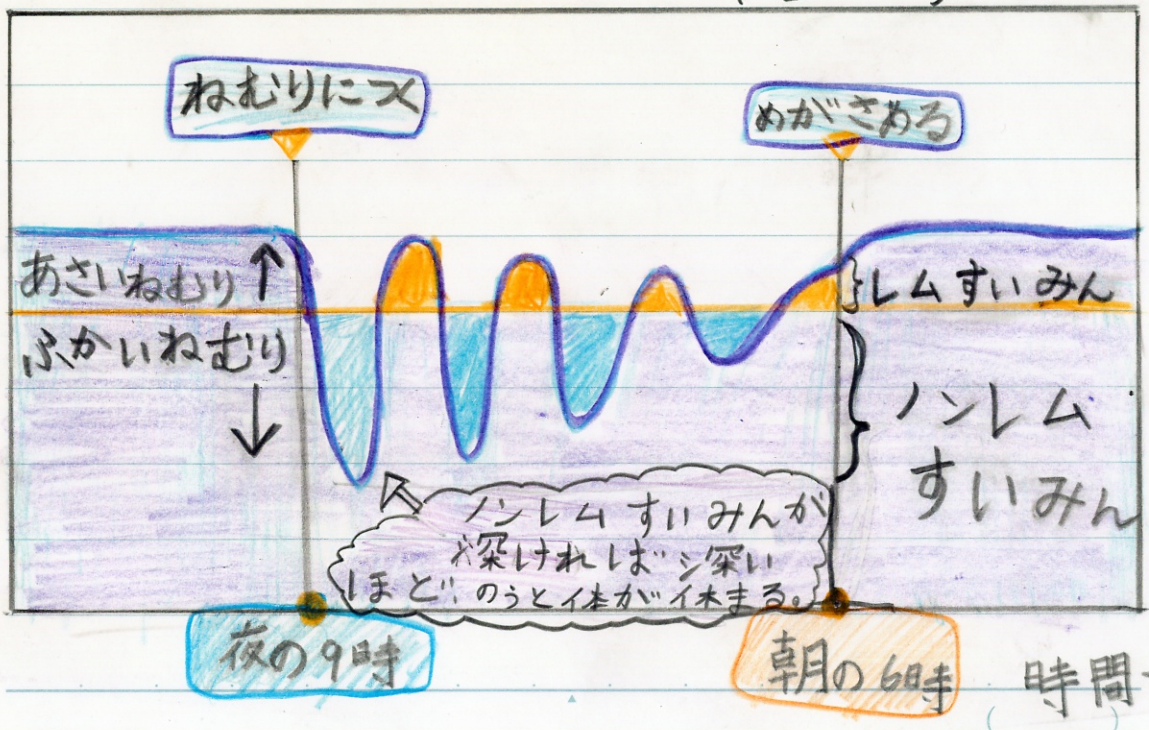 ねむりにつく
めがさめる
あさいねむり↑
レムすいみん
ふかいねむり
↓
ノンレム
すいみん
ノンレムすいみんが
深ければ深い
ほど、のうと体が休まる。
夜の9時
朝の6時
時間